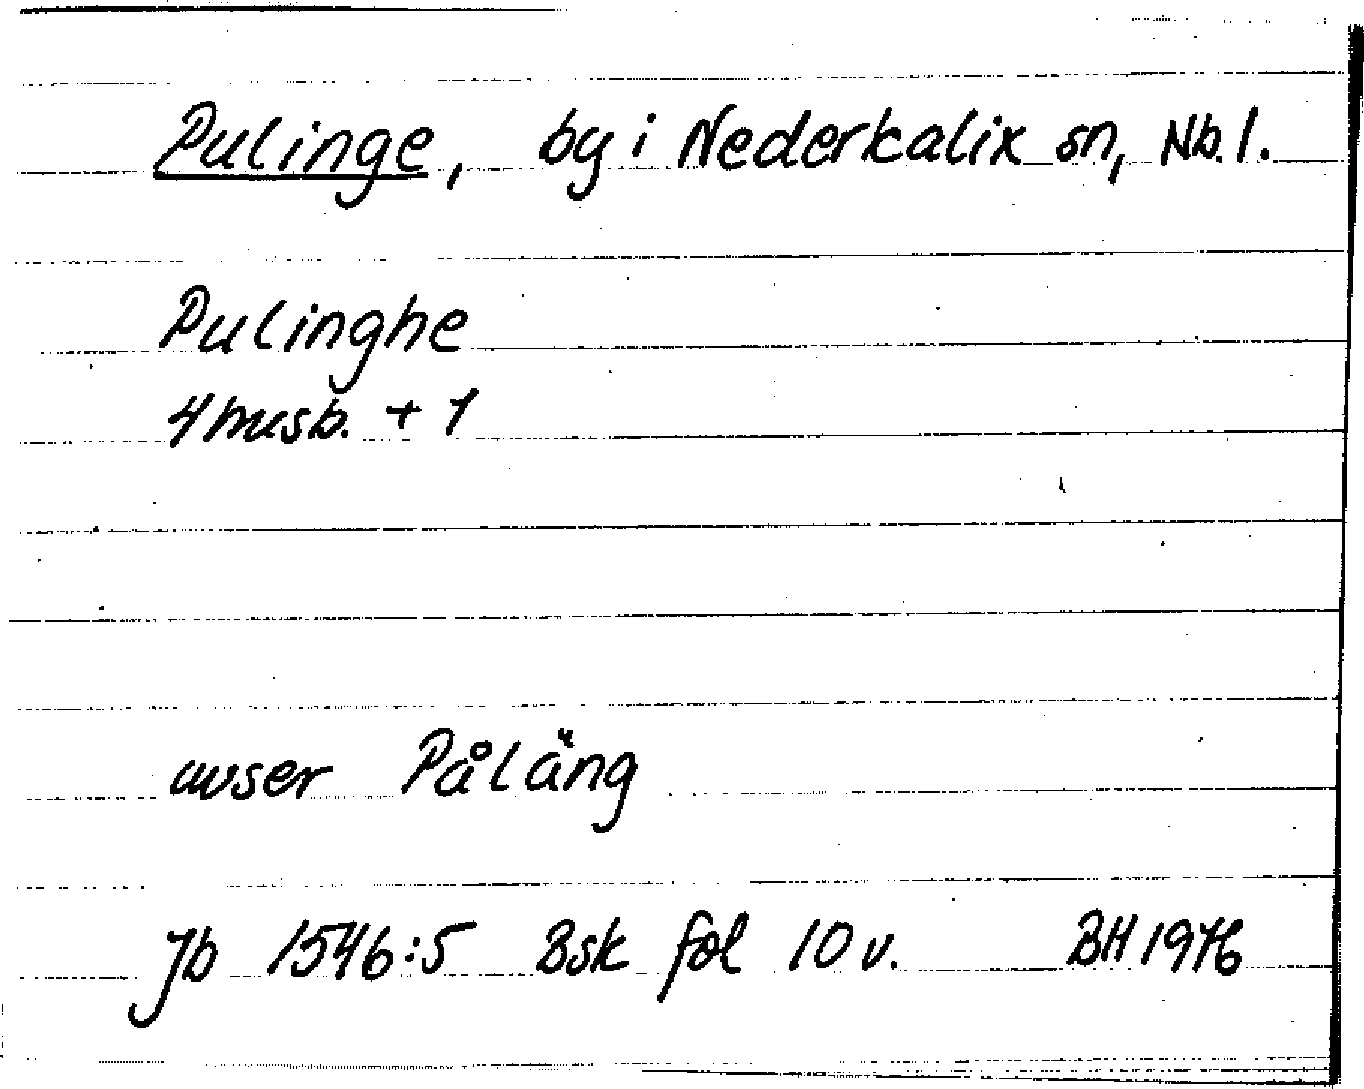 Pulinge, by i Nederkalix sn, Nb. l.
Pulinghe
4 mssb. + 1
avser Påläng
Jb 1546:5 Bsk fol 10 v. BH 1976